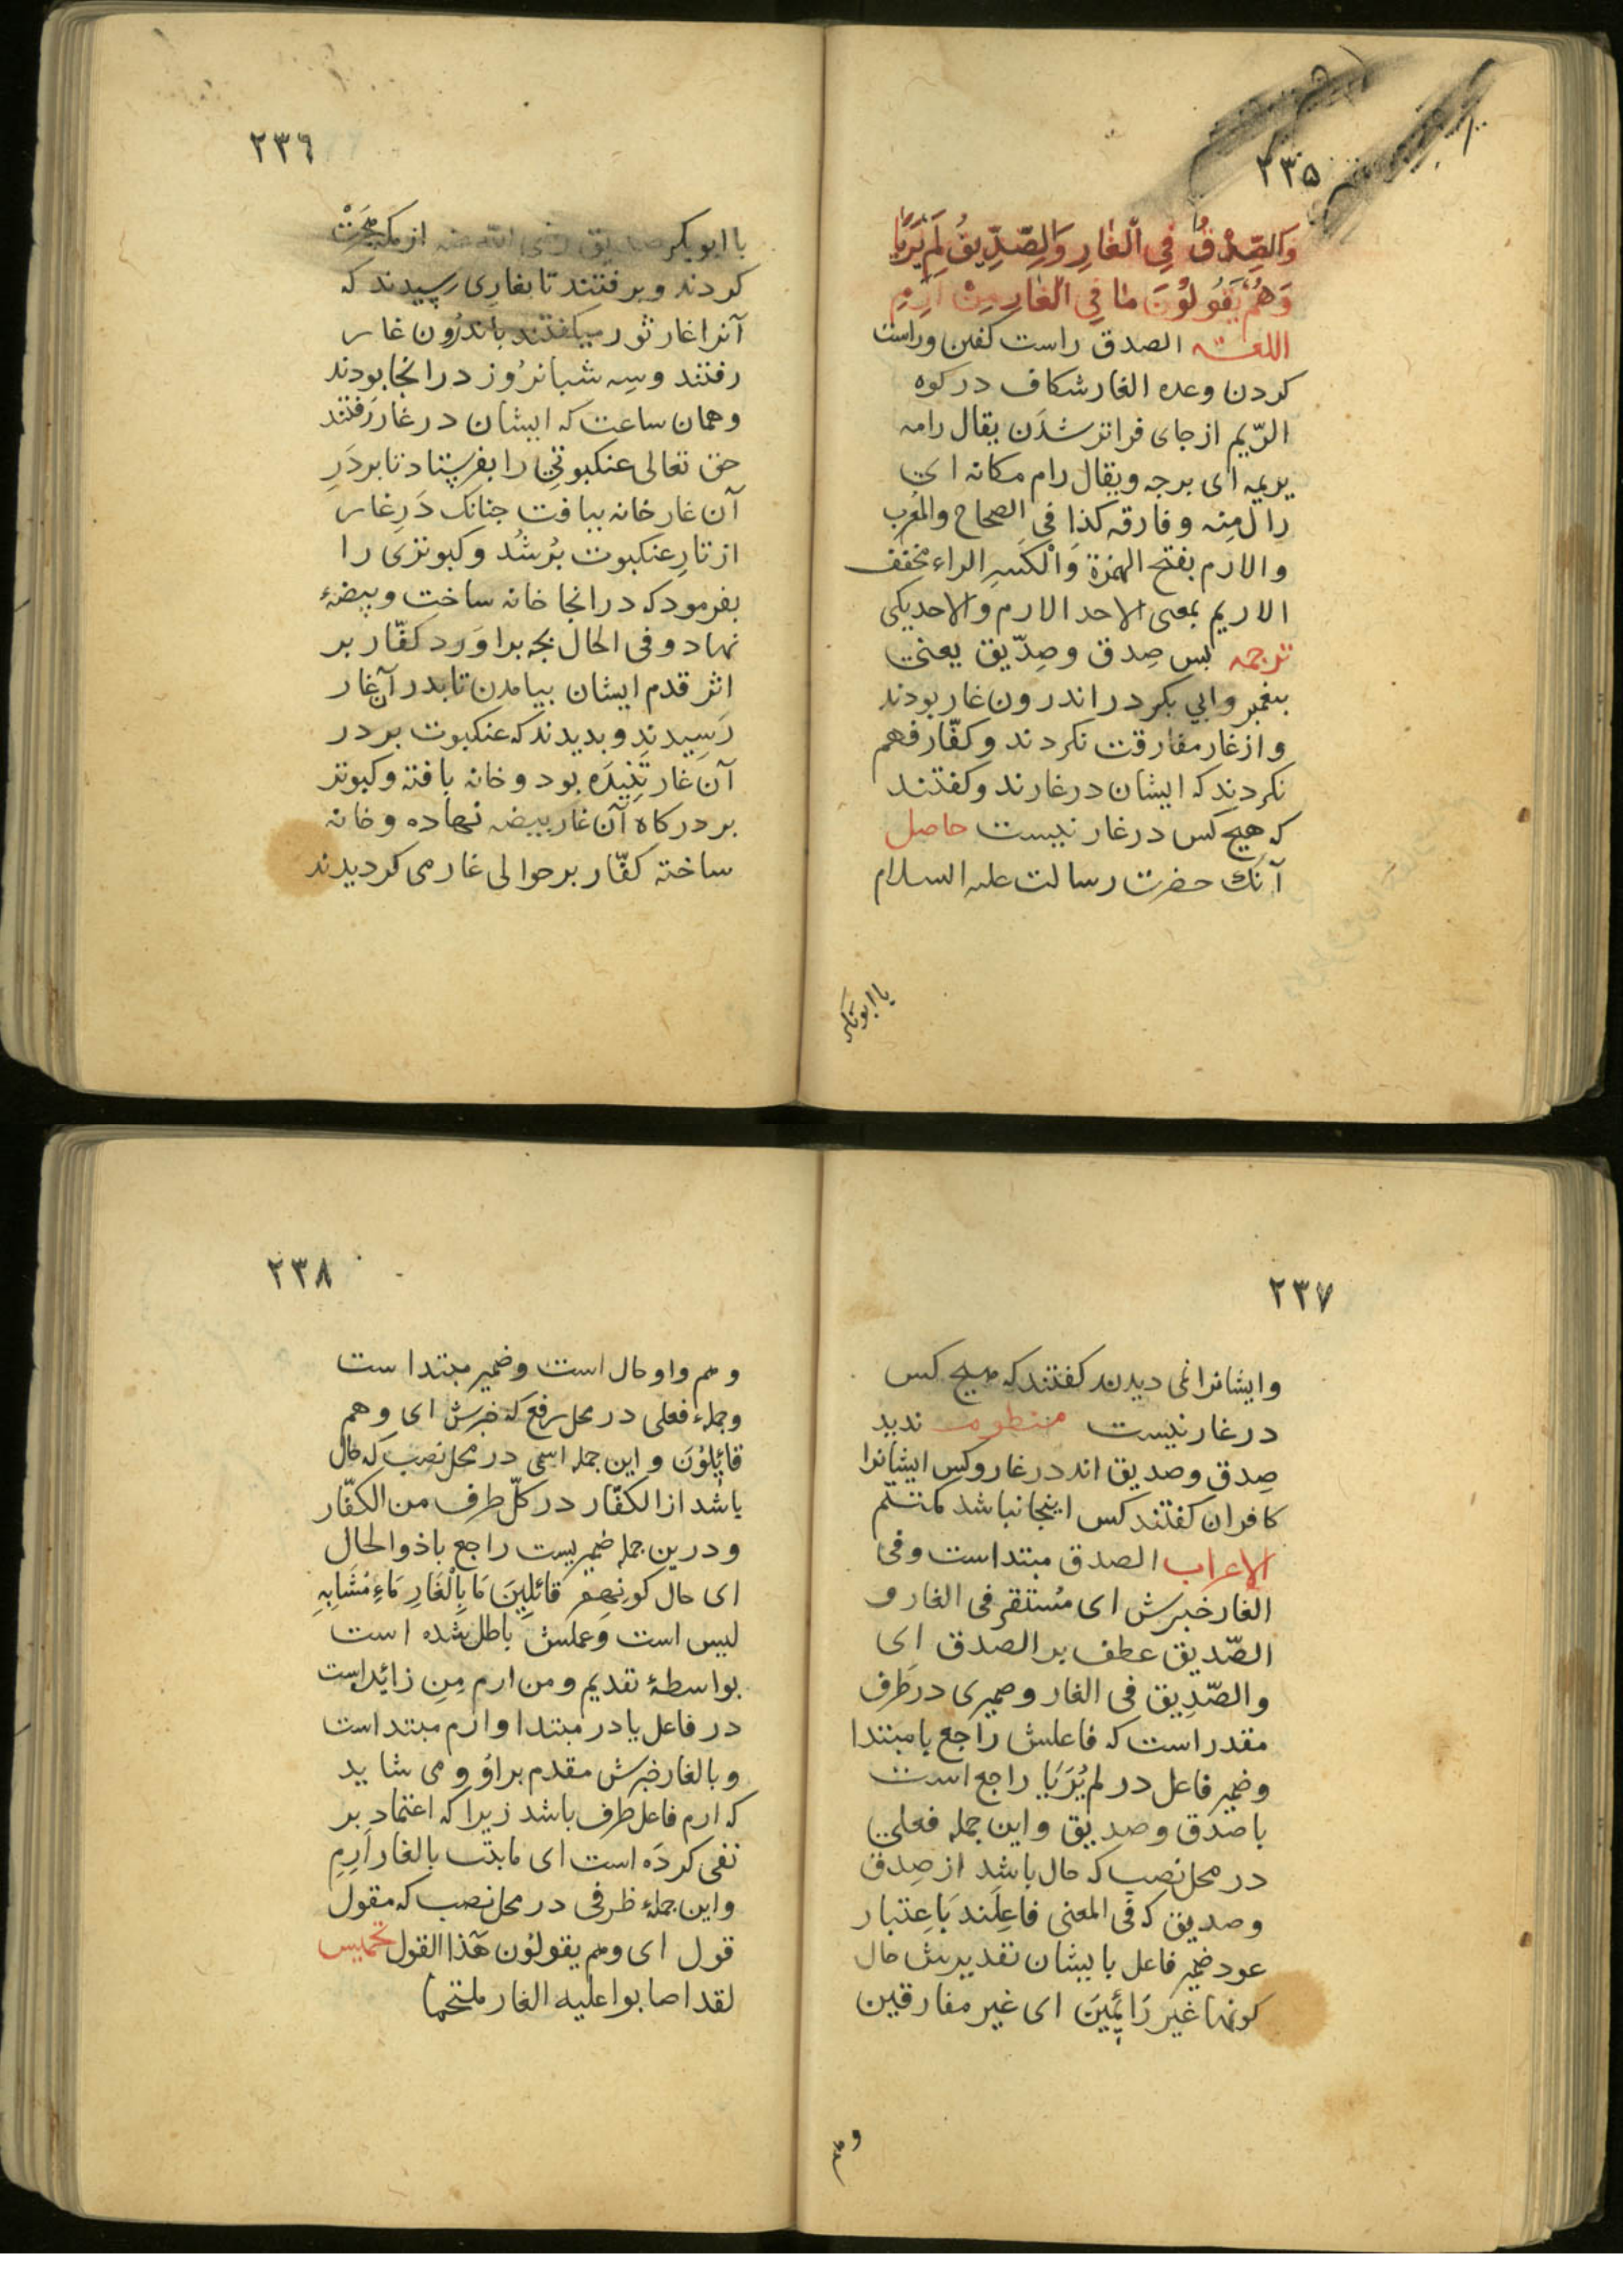 ٢٣٥
وَالصِّدْقُ فِي الْغَارِ وَالصِّدِّيقُ لَمْ يَرِيَا
وَهُمْ يَقُولُوْنَ مَا فِي الْغَارِ مِنْ أَرِمِ
اللغة الصدق راست كفتن وراست
كردن وعده الغار شكاف در كوه
الرّيم از جاى فراتر شدَن يقال رامه
يريمه اى برجه ويقال رام مكانه اى
زال منه وفارقه كذا فى الصحاح والمغرب
والارم بفتح الهمزة وَالْكسرِ الراء مخفف
الاريم بمعنى الاحد الارم والاحد يكى
ترجمه بس صِدق وصِدّيق يعنى
بيغمبر وابي بكر در اندرون غار بودند
واز غار مفارقت نكردند وكفّار فهم
نكردند كه ايشان در غارند وكفتند
كه هيچ كس در غار نيست حاصل
آنك حضرت رسالت عليه السلام
با ابوبكر
٢٣٦
با ابوبكر صديق رضى الله عنه از مكه هِجرَتْ
كردند وبرفتند تا بغارى رسيدند كه
آنرا غار ثور ميكفتند باندرُون غار
رفتند وسِه شبانرُوز در انجا بودند
وهمان ساعت كه ايشان در غار رَفتند
حق تعالى عنكبوتى را بفرستاد تا بر دَرِ
آن غار خانه ببافت جنانك دَرِ غار
از تارِ عنكبوت بُر شُد وكبوترى را
بفرمود كه در انجا خانه ساخت وبيضهٔ
نهاد وفى الحال بچه براوَرد كفّار بر
اثر قدم ايشان بيامدن تا بدر آن غار
رَسِيدند وبديدند كه عنكبوت بر در
آن غار تَنِيدَه بود وخانه بافته وكبوتر
بر در كاه آن غار بيضه نهاده وخانه
ساخته كفّار بر حوالى غار مى كرديدند
٢٣٧
وايشانرا نمى ديدند كفتند كه هيچ كس
در غار نيست منظومه نديد
صِدق وصديق اند در غار وكس ايشانرا
كافران كفتند كس اينجا نباشد
الاعراب الصدق مبتداست وفى
الغار خبرش اى مُستقر فى الغار و
الصّديق عطف بر الصدق اى
والصّدِيق فى الغار وضميرى در ظَرف
مقدر است كه فاعلش راجع با مبتدا
وضمير فاعل در لم يُرَيَا راجع است
با صدق وصديق واين جمله فعلى
در محل نصب كه حال باشد از صِدق
وصديق كه فى المعنى فاعِلَند بَاعِتبار
عود ضمير فاعل بايشان تقديرش حال
كونهما غير رَائِمِينَ اى غير مفارقين
وهم
٢٣٨
وهم واو حال است وضمير مبتداست
وجملهٔ فعلى در محل رفع كه خبرش اى وهم
قائِلُوْنَ واين جمله اسمى در محل نصب كه حال
باشد از الكفّار در كلّ طرف من الكفّار
ودرين جمله ضميريست راجع باذو الحال
اى حال كونِهِم قائلِينَ مَا بِالْغَارِ مَاءِ مُشَابِهِ
ليس است وعملش باطل شده است
بواسطهٔ تقديم ومن ارم مِن زائد است
در فاعل يا در مبتدا وارم مبتداست
وبالغار خبرش مقدم براوُ ومى شايد
كه ارم فاعل ظرف باشد زيرا كه اعتماد بر
نفى كردَه است اى ما بالغار اَرِمِ
واين جملهٔ ظرفى در محل نصب كه مقول
قول اى وهم يقولُون هَذا القول تخميس
لقد اصابوا عليه الغار ملتحما